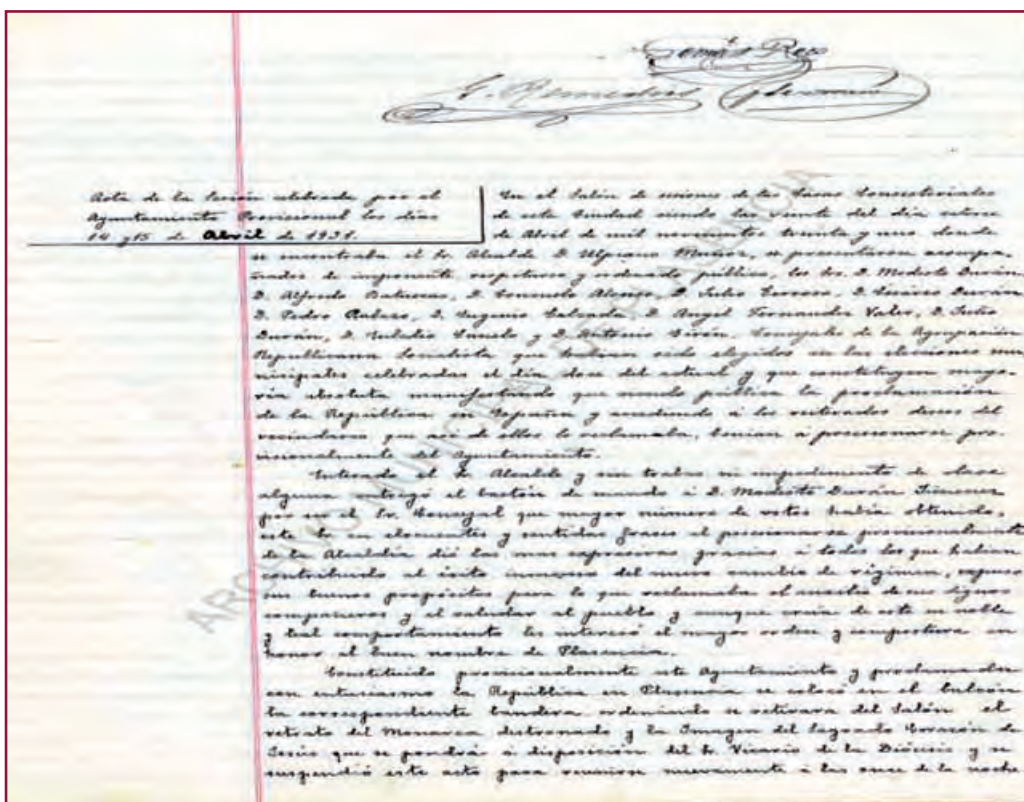 Tomás Rec
G. Remedios Germán
Acta de la Sesión celebrada por el
Ayuntamiento Provisional los días
14 y 15 de Abril de 1931.
En el Salón de sesiones de las Casas Consistoriales
de esta Ciudad siendo las veinte del día catorce
de Abril de mil novecientos treinta y uno donde
se encontraba el Sr. Alcalde D. Ulpiano Muñoz, se presentaron acompa-
ñados de imponente respetuoso y ordenado público, los Srs. D. Modesto Durán
D. Alfredo Baturnas, D. Consuelo Alonso, D. Julio Cerroso, D. Durán
D. Pedro Rabazo, D. Eugenio Calzada, D. Angel Fernandez Valer, D. Julio
Durán, D. Eulalio Canelo y D. Antonio Girón, Concejales de la Agrupación
Republicana Socialista que habían sido elegidos en las elecciones mu-
nicipales celebradas el día doce del actual y que constituyen mayo-
ría absoluta manifestando que siendo pública la proclamación
de la República en España y accediendo a los reiterados deseos del
vecindario que así de ellos lo reclamaba, venían a posesionarse pro-
visionalmente del Ayuntamiento.
Enterado el Sr. Alcalde y sin trabas ni impedimento de clase
alguna entregó el bastón de mando a D. Modesto Durán Jimenez
por ser el Sr. Concejal que mayor número de votos había obtenido,
este Sr. en elocuentes y sentidas frases al posesionarse provisionalmente
de la Alcaldía dió las mas expresivas gracias a todos los que habían
contribuido al éxito inmenso del nuevo cambio de régimen, expuso
sus buenos propósitos para lo que reclamaba el auxilio de sus dignos
compañeros y al saludar al pueblo y aunque creía de este su noble
y leal comportamiento les interesó el mayor orden y compostura en
honor al buen nombre de Plasencia.
Constituido provisionalmente este Ayuntamiento y proclamada
con entusiasmo la República en Plasencia se colocó en el balcón
la correspondiente bandera ordenando se retirara del Salón el
retrato del Monarca destronado y la Imagen del Sagrado Corazón de
Jesús que se pondrá a disposición del Sr. Vicario de la Diócesis y se
suspendió este acto para reunirse nuevamente a las once de la noche
ARCHIVO MUNICIPAL PLASENCIA